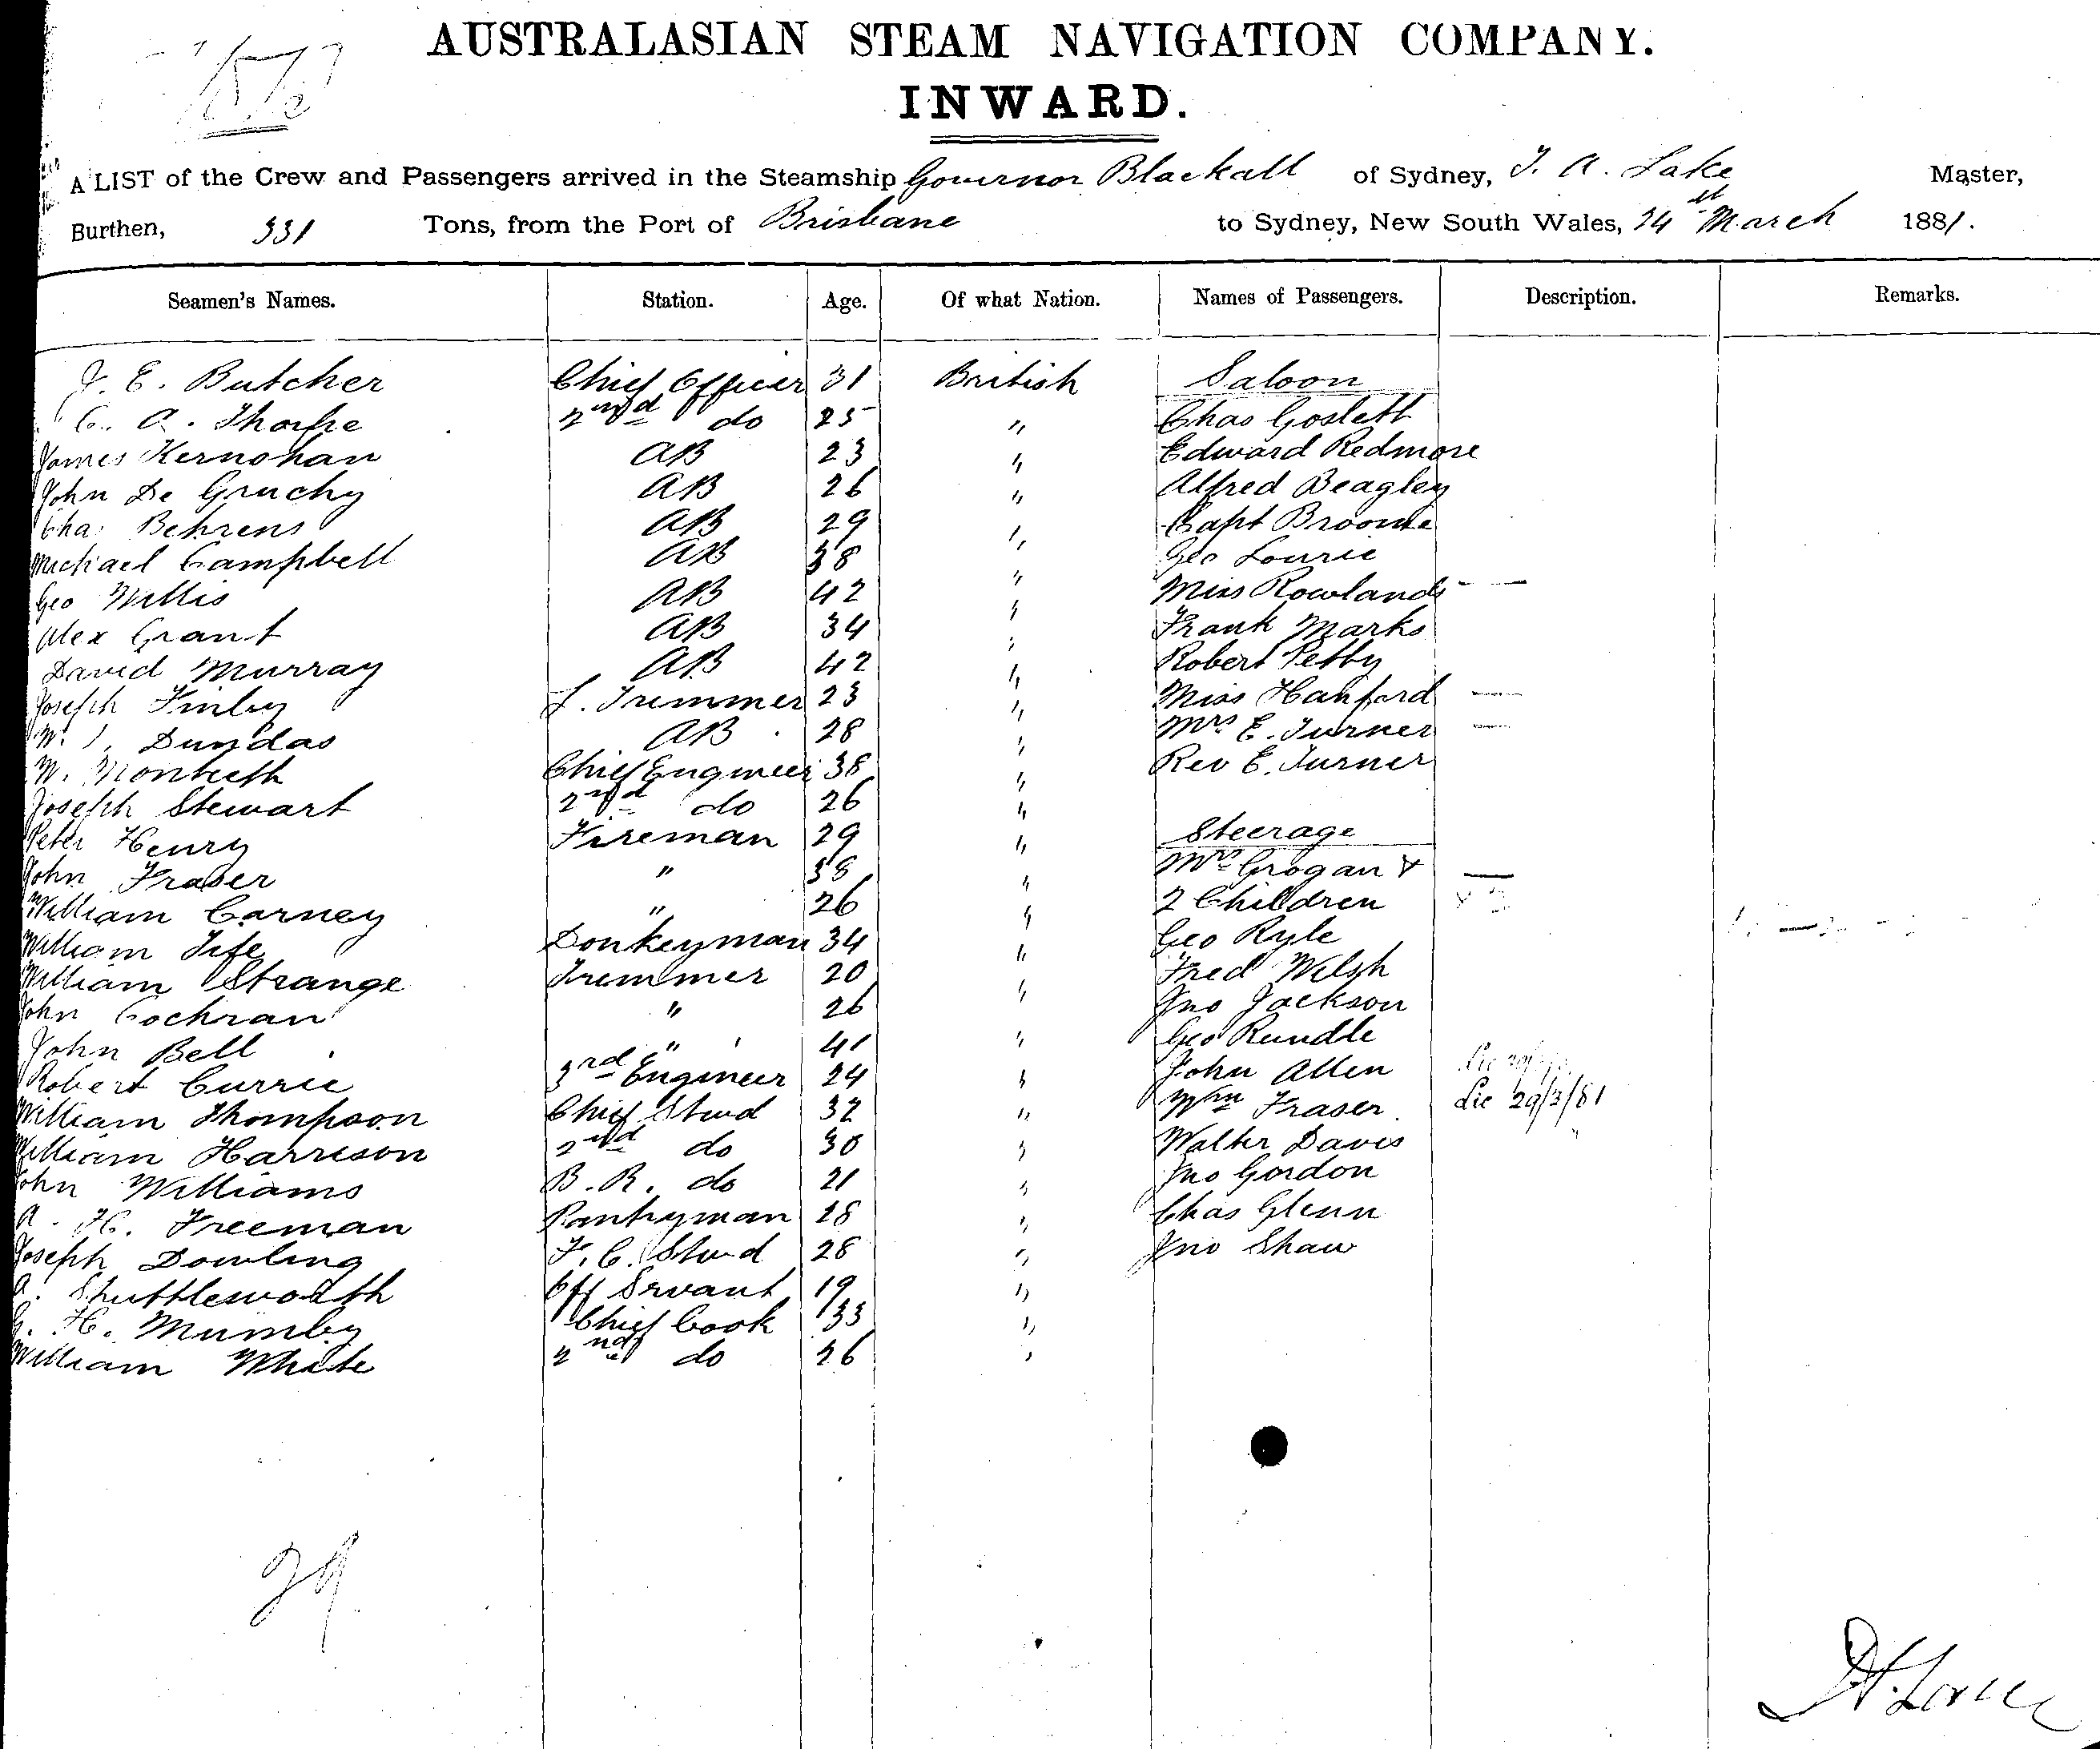 AUSTRALASIAN STEAM NAVIGATION COMPANY.
INWARD.
A LIST of the Crew and Passengers arrived in the Steamship Governor Blackall of Sydney, T. A. Lake Master,
Burthen, 331 Tons, from the Port of Brisbane to Sydney, New South Wales, 24th March 1881.
Seamen's Names. Station. Age. Of what Nation. Names of Passengers. Description. Remarks.
J. E. Butcher Chief Officer 31 British Saloon
C. A. Thorpe 2nd do 25 " Chas Goslett
James Kernohan AB 23 " Edward Redmore
John De Gruchy AB 26 " Alfred Beagley
Cha: Behrens AB 29 " Capt Broome
Michael Campbell AB 38 " Geo Lourie
Geo Willis AB 42 " Miss Rowlands —
Alex Grant AB 34 " Frank Marks
David Murray AB 42 " Robert Petty
Joseph Finlay L. Trimmer 23 " Miss Hanford —
W. Dundas AB 28 " Mrs E. Turner —
W. Monteith Chief Engineer 38 " Rev E. Turner
Joseph Stewart 2nd do 26 "
Peter Henry Fireman 29 " Steerage
John Fraser " 38 " Mrs Grogan & —
William Carney " 26 " 2 Children
William Fife Donkeyman 34 " Geo Ryle
William Strange Trimmer 20 " Fred Welsh
John Cochran " 26 " Jno Jackson
John Bell " 41 " Geo Rundle
Robert Currie 3rd Engineer 24 " John Allen
William Thompson Chief Stwd 32 " Wm Fraser Lic 29/3/81
William Harrison 2nd do 30 " Walter Davis
John Williams B. R. do 21 " Jno Gordon
A. H. Freeman Pantryman 28 " Chas Glenn
Joseph Dowling F. C. Stwd 28 " Jno Shaw
A. Shuttleworth Off Servant 19 "
G. H. Mumby Chief Cook 33 "
William White 2nd do 26 "
29